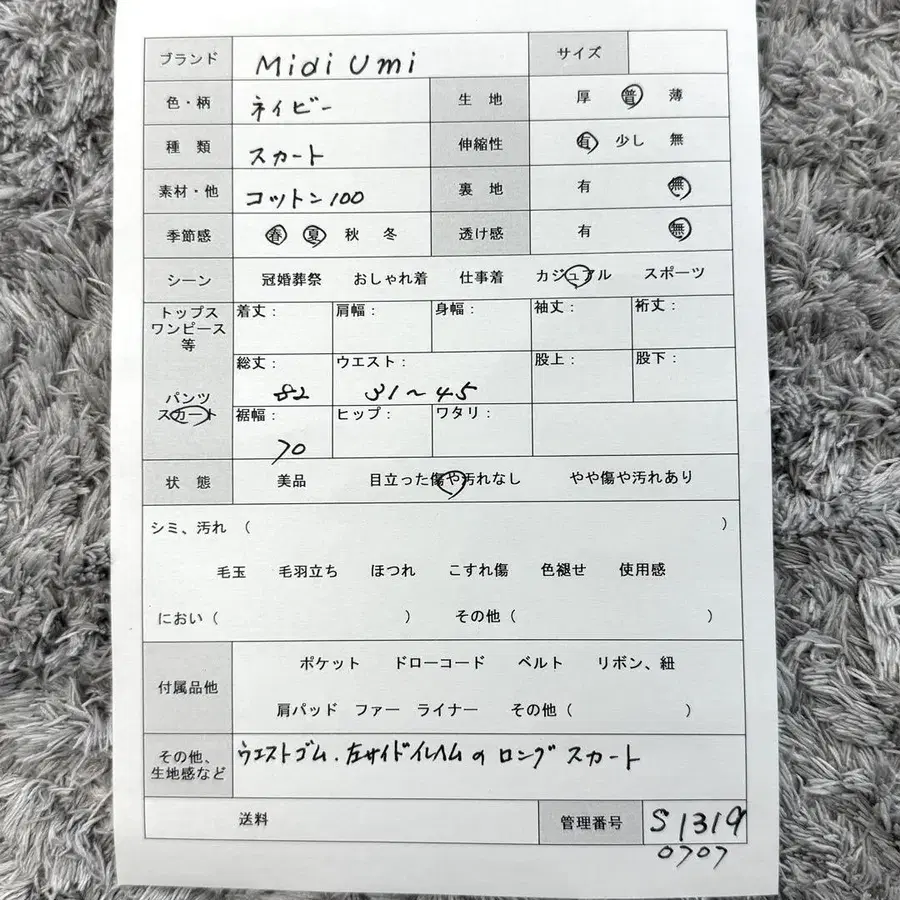 ブランド Midi Umi サイズ
色・柄 ネイビー 生 地 厚 普 薄
種 類 スカート 伸縮性 有 少し 無
素材・他 コットン100 裏 地 有 無
季節感 春 夏 秋 冬 透け感 有 無
シーン 冠婚葬祭 おしゃれ着 仕事着 カジュアル スポーツ
トップス
ワンピース
等
着丈: 肩幅: 身幅: 袖丈: 裄丈:
パンツ
スカート
総丈: ウエスト: 股上: 股下:
82 31~45
裾幅: ヒップ: ワタリ:
70
状 態 美品 目立った傷や汚れなし やや傷や汚れあり
シミ、汚れ ( )
毛玉 毛羽立ち ほつれ こすれ傷 色褪せ 使用感
におい ( ) その他 ( )
付属品他 ポケット ドローコード ベルト リボン、紐
肩パッド ファー ライナー その他 ( )
その他、
生地感など
ウエストゴム.左サイドイレヘムのロングスカート
送料 管理番号 S1319
0707